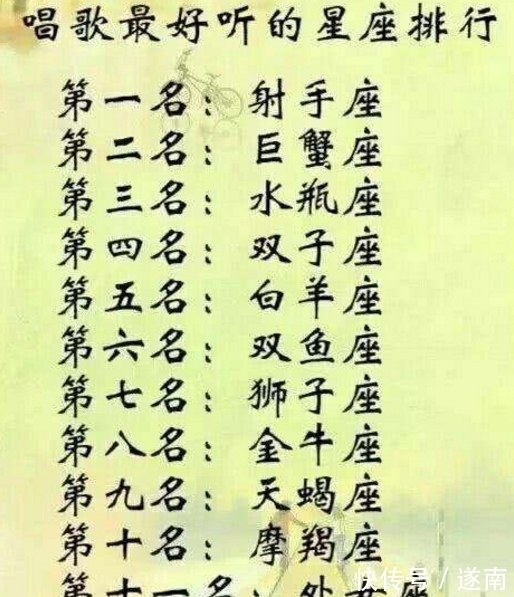 唱歌最好听的星座排行
第一名：射手座
第二名：巨蟹座
第三名：水瓶座
第四名：双子座
第五名：白羊座
第六名：双鱼座
第七名：狮子座
第八名：金牛座
第九名：天蝎座
第十名：摩羯座
第十一名：处女座
快传号/遂南